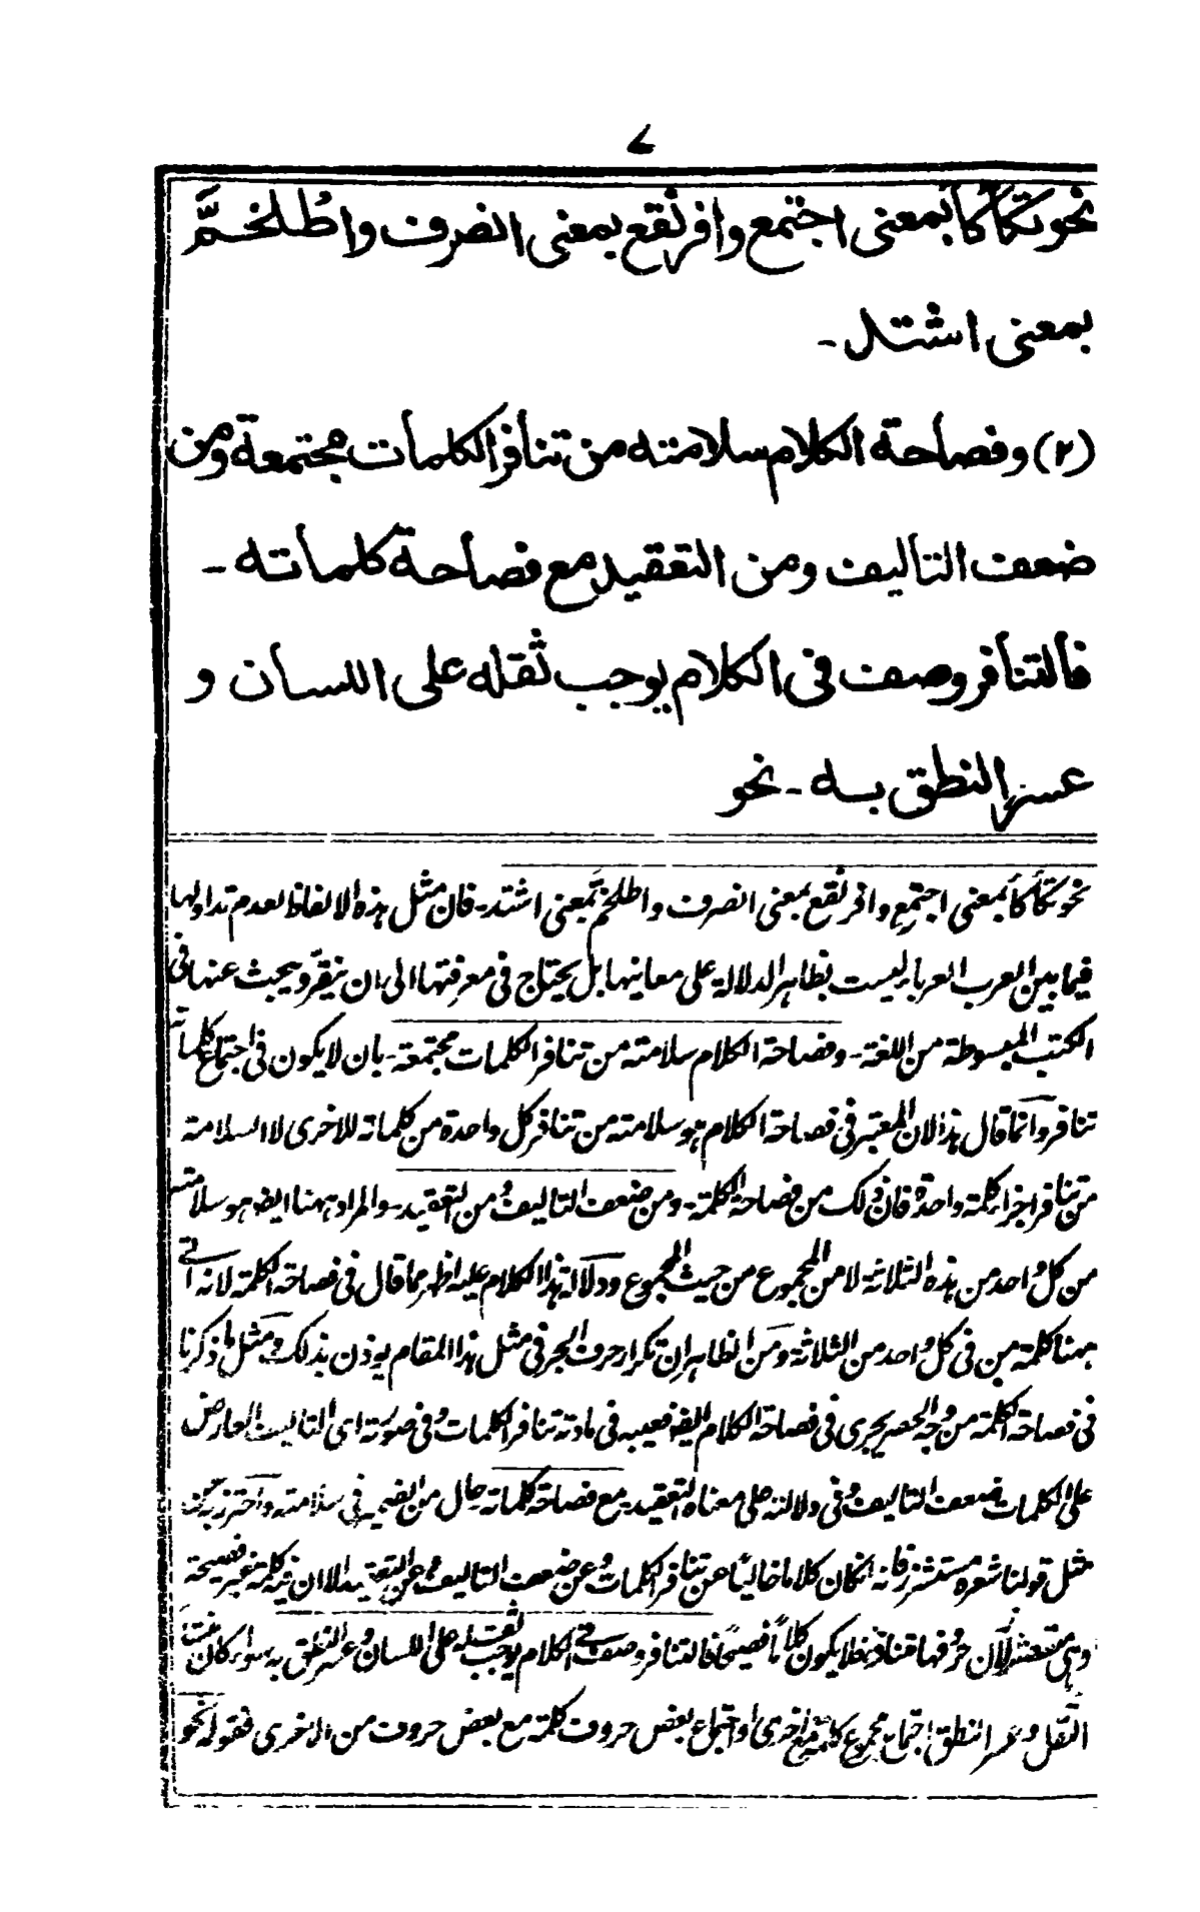 ٧
نحو تكأكأ بمعنى اجتمع وافرنقع بمعنى انصرف واطلخمَّ
بمعنى اشتد -
(٢) وفصاحة الكلام سلامته من تنافر الكلمات مجتمعة ومن
ضعف التاليف ومن التعقيد مع فصاحة كلماته -
فالتنافر وصف فى الكلام يوجب ثقله على اللسان و
عسر النطق به - نحو
نحو تكأكأ بمعنى اجتمع وافرنقع بمعنى انصرف واطلخمَّ بمعنى اشتد - فان مثل هذه الالفاظ لعدم تداولها
فيما بين العرب العرباء ليست بظاهر الدلالة على معانيها بل يحتاج فى معرفتها الى ان ينقر ويبحث عنها فى
الكتب المبسوطة من اللغة - وفصاحة الكلام سلامته من تنافر الكلمات مجتمعة - بان لا يكون فى اجتماع كلماته
تنافر وانما قال هذا لان المعتبر فى فصاحة الكلام هو سلامته من تنافر كل واحدة من كلماته للاخرى لا السلامة
من تنافر اجزاء كلمة واحدة فان ذلك من فصاحة الكلمة - ومن ضعف التاليف ومن التعقيد - والمراد ههنا ايضا هو سلامته
من كل واحد من هذه الثلاثة لا من المجموع من حيث المجموع ودلالة هذا الكلام عليه اظهر مما قال فى فصاحة الكلمة لانه اتى
ههنا كلمة من فى كل واحد من الثلاثة ومن الظاهر ان تكرار حرف الجر فى مثل هذا المقام يوذن بذلك ومثل ما ذكرنا
فى فصاحة الكلمة من وجه الحصر يجرى فى فصاحة الكلام ايضا فعيبه فى مادته تنافر الكلمات وفى صورته اى التاليف العارض
على الكلمات ضعف التاليف وفى دلالته على معناه التعقيد - مع فصاحة كلماته حال من الضمير فى سلامته واحترز به عن
مثل قولنا شعره مستشزر فانه ان كان كلاما خاليا عن تنافر الكلمات وعن ضعف التاليف وعن التعقيد الا ان فيه كلمة غير فصيحة
وهى مستشزر لان حروفها متنافرة فلا يكون كلاما فصيحا فالتنافر وصف فى الكلام يوجب ثقله على اللسان وعسر النطق به سواء كان منشأ
الثقل وعسر النطق اجتماع مجموع كلمة مع اخرى او اجتماع بعض حروف كلمة مع بعض حروف من الاخرى فقوله نحو